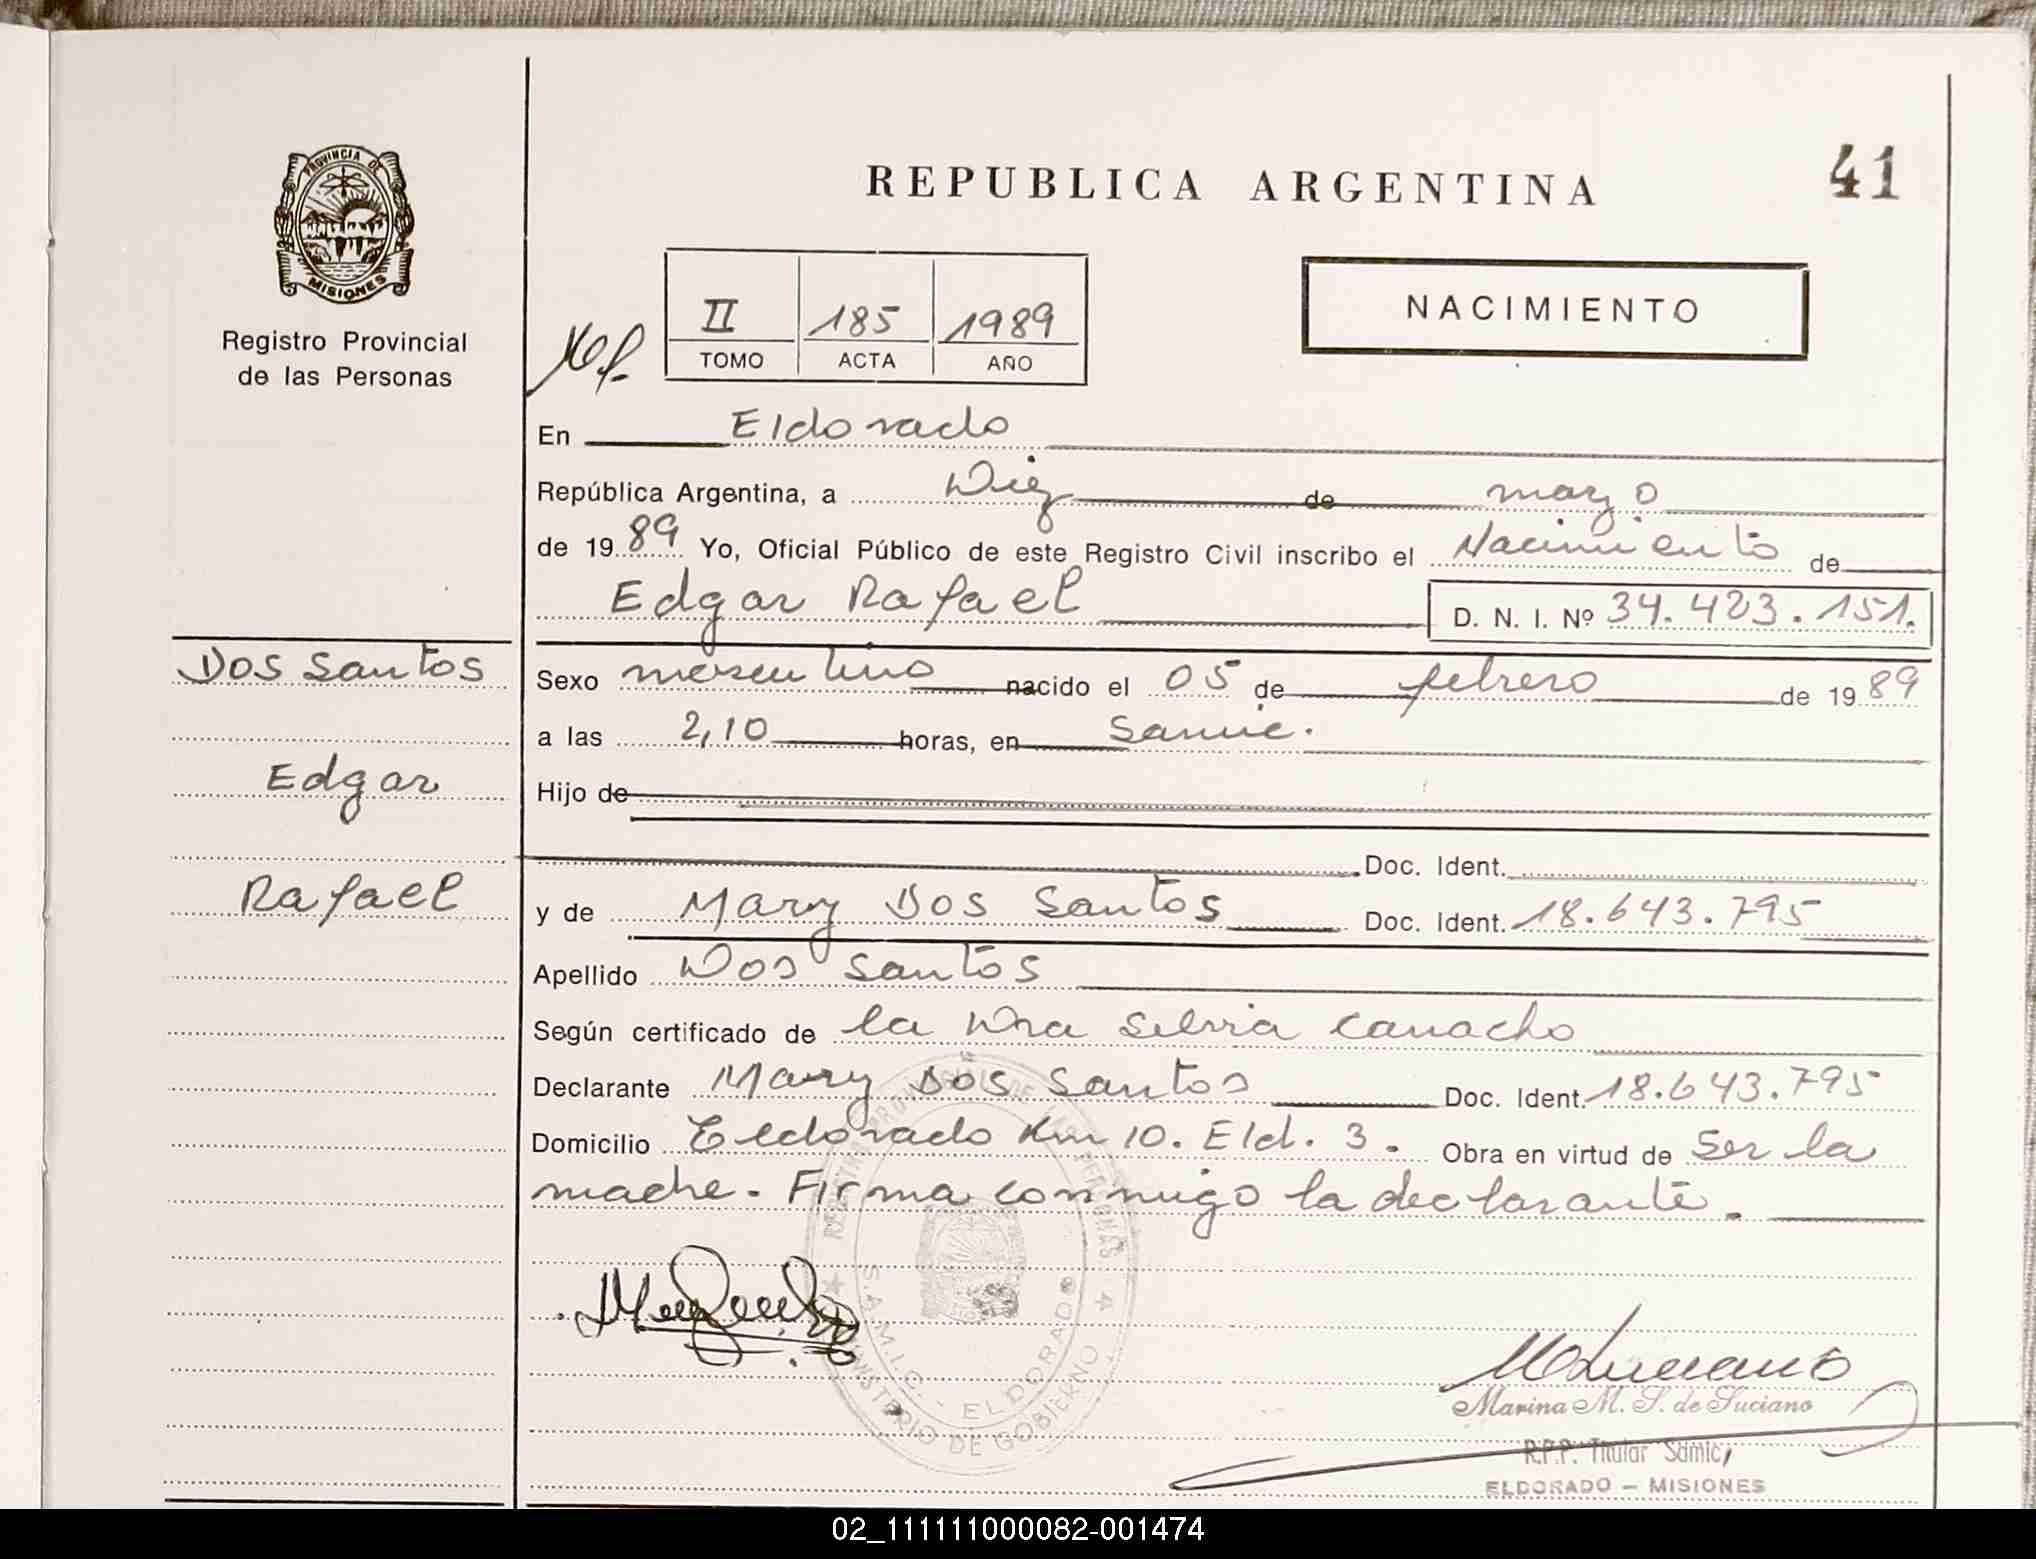 PROVINCIA DE
MISIONES
Registro Provincial
de las Personas
REPUBLICA ARGENTINA
41
II 185 1989
TOMO ACTA AÑO
NACIMIENTO
En Eldorado
República Argentina, a Diez de marzo
de 1989 Yo, Oficial Público de este Registro Civil inscribo el Nacimiento de
Edgar Rafael D. N. I. Nº 34.423.151.
Dos Santos
Edgar
Rafael
Sexo masculino nacido el 05 de febrero de 1989
a las 2,10 horas, en Samic.
Hijo de
Doc. Ident.
y de Mary Dos Santos Doc. Ident. 18.643.795
Apellido Dos Santos
Según certificado de la Dra Silvia Camacho
Declarante Mary Dos Santos Doc. Ident. 18.643.795
Domicilio Eldorado Km 10. Eld. 3. Obra en virtud de Ser la
madre. Firma conmigo la declarante.
REGISTRO PROVINCIAL DE LAS PERSONAS
S.A.M.I.C. - ELDORADO
MINISTERIO DE GOBIERNO
Marina M. S. de Luciano
R.P.P. Titular Samic,
ELDORADO — MISIONES
02_111111000082-001474